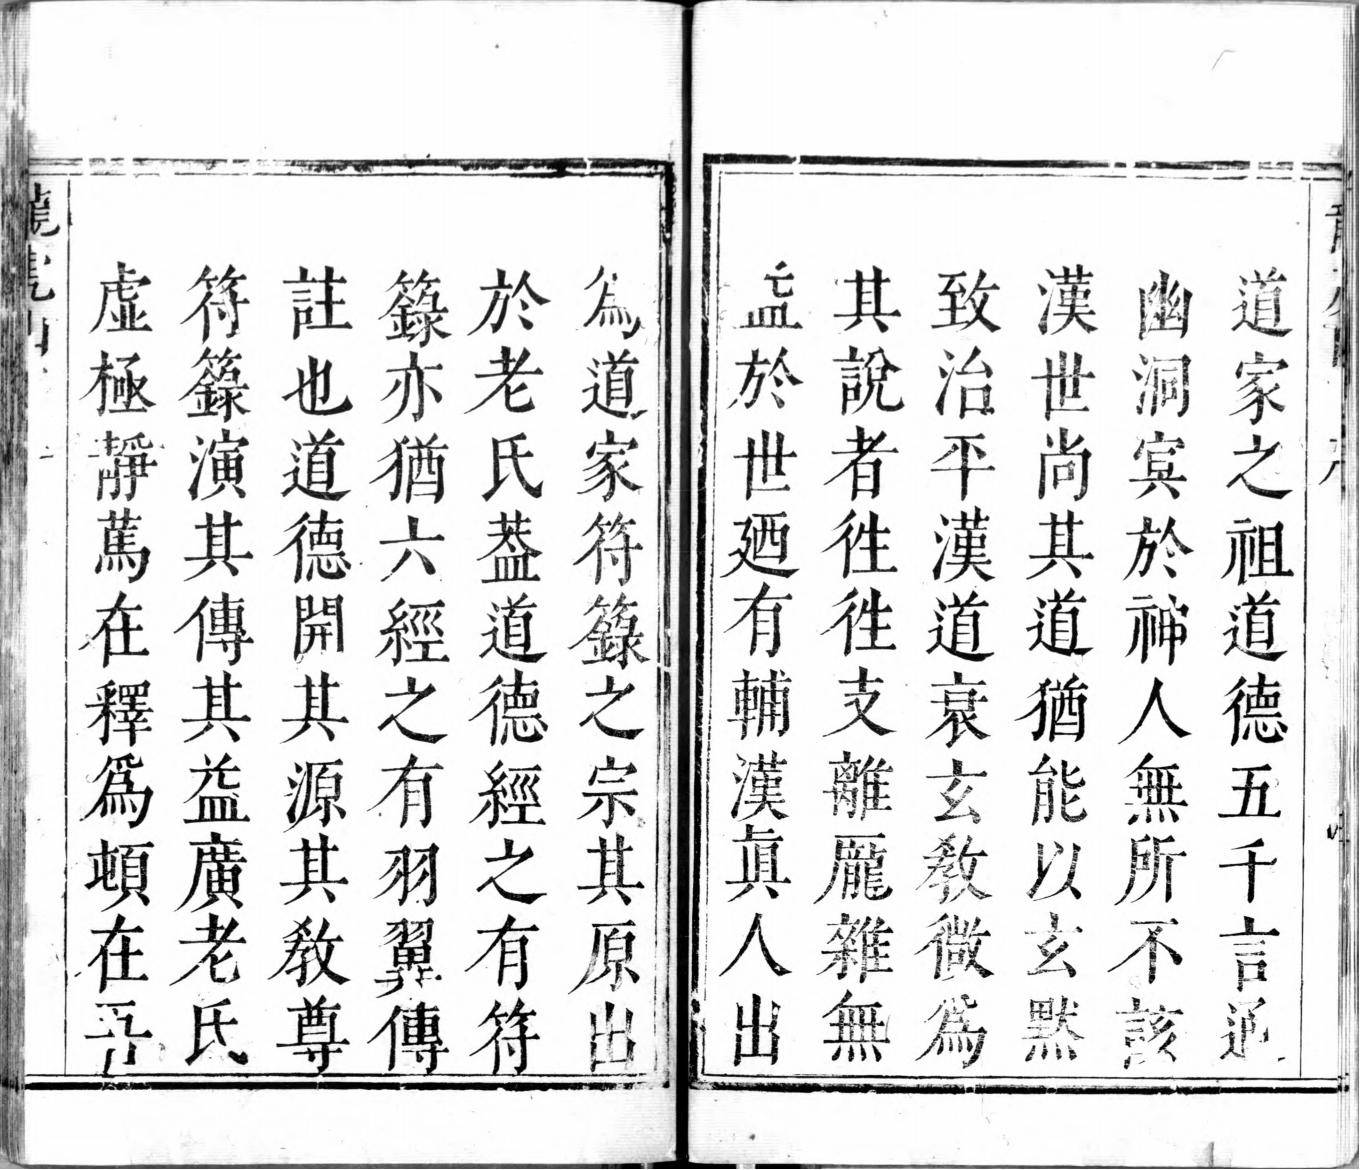 道家之祖道德五千言通
幽洞㝠於神人無所不該
漢世尚其道猶能以玄黙
致治平漢道衰玄教微爲
其說者徃徃支離厖雜無
益於世廼有輔漢眞人出
爲道家符籙之宗其原出
於老氏葢道德經之有符
籙亦猶六經之有羽翼傳
註也道德開其源其敎尊
符籙演其傳其益廣老氏
虛極靜篤在釋爲頓在吾
龍虎山